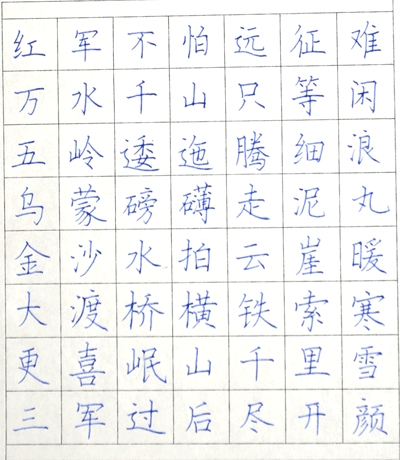 红军不怕远征难
万水千山只等闲
五岭逶迤腾细浪
乌蒙磅礴走泥丸
金沙水拍云崖暖
大渡桥横铁索寒
更喜岷山千里雪
三军过后尽开颜